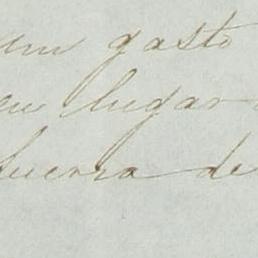 um gasto
eu lugar
Guerra de